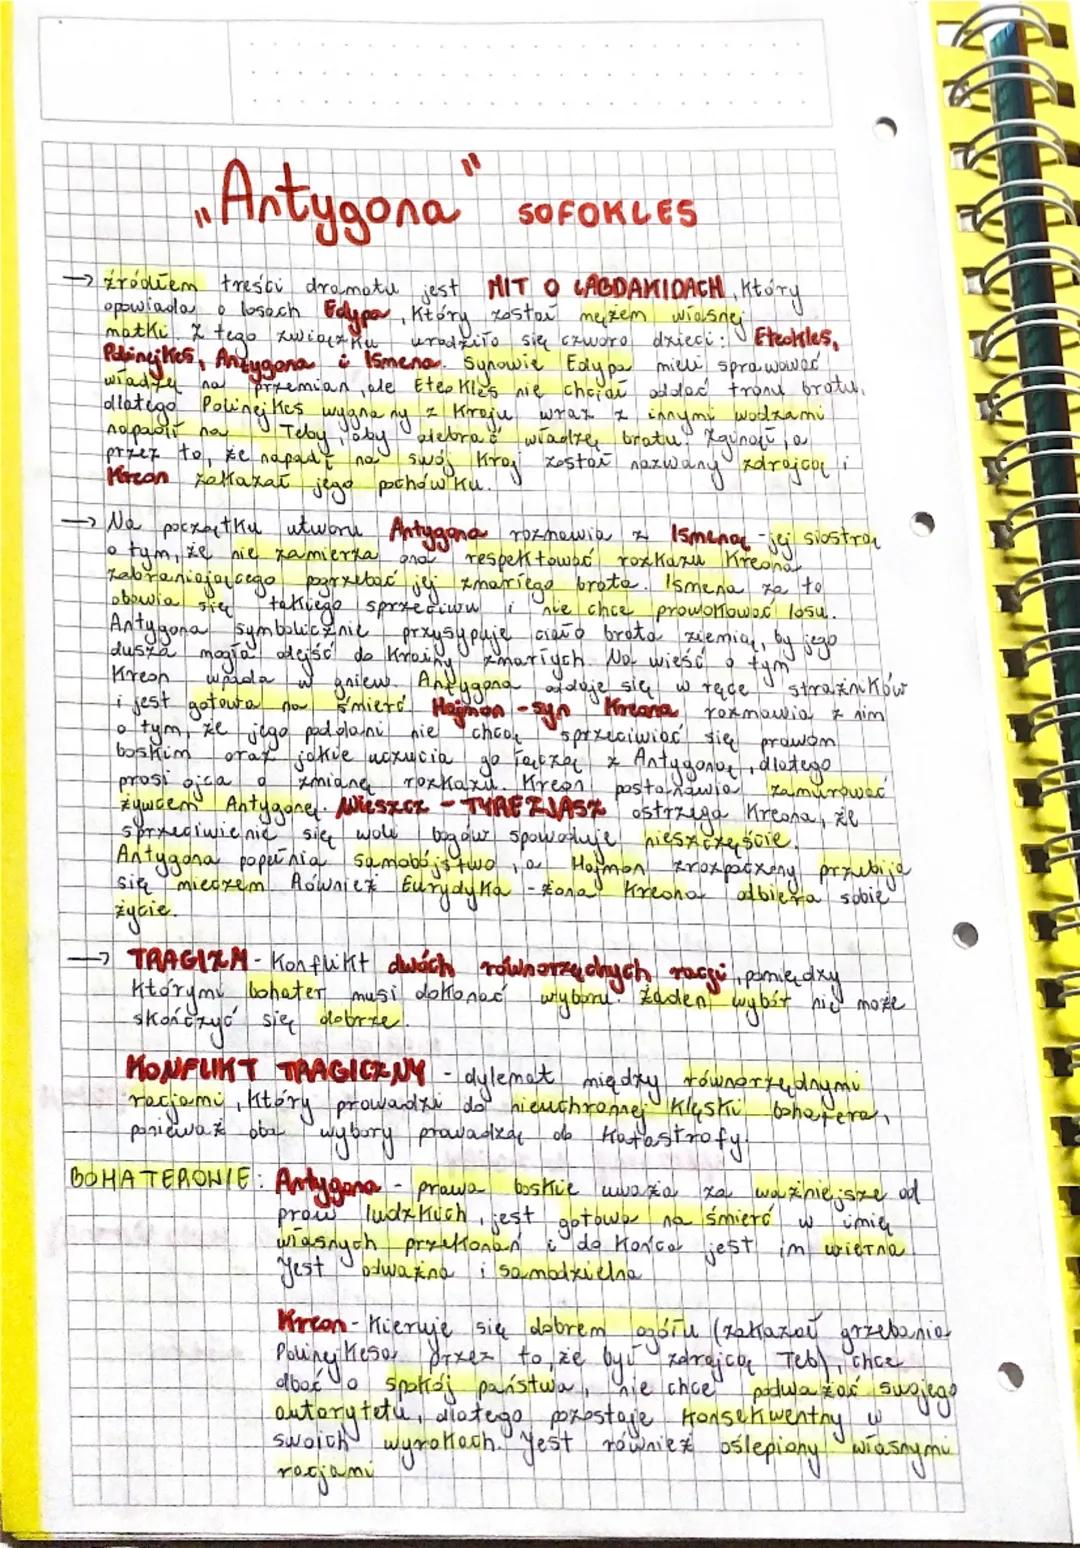 „Antygona” SOFOKLES
→ źródłem treści dramatu jest MIT O LABDAKIDACH, który
opowiada o losach Edypa, który został mężem własnej
matki. Z tego związku urodziło się czworo dzieci: Eteokles,
Polinejkes, Antygona i Ismena. Synowie Edypa mieli sprawować
władzę na przemian, ale Eteokles nie chciał oddać tronu bratu,
dlatego Polinejkes wygnany z kraju wraz z innymi wodzami
napadli na Teby, aby odebrać władzę bratu. Zginęli, a
przez to, że napadł na swój kraj został nazwany zdrajcą i
Kreon zakazał jego pochówku.
→ Na początku utworu Antygona rozmawia z Ismeną - jej siostrą
o tym, że nie zamierza ona respektować rozkazu Kreona
zabraniającego pogrzebać jej zmarłego brata. Ismena za to
obawia się takiego sprzeciwu i nie chce prowokować losu.
Antygona symbolicznie przysypuje ciało brata ziemią, by jego
dusza mogła odejść do krainy zmarłych. Na wieść o tym
Kreon wpada w gniew. Antygona oddaje się w ręce strażników
i jest gotowa na śmierć. Hajmon - syn Kreona rozmawia z nim
o tym, że jego poddani nie chcą sprzeciwiać się prawom
boskim oraz jakie uczucia go łączą z Antygoną, dlatego
prosi ojca o zmianę rozkazu. Kreon postanawia zamurować
żywcem Antygonę. Wieszcz - TYREZJASZ ostrzega Kreona, że
sprzeciwienie się woli bogów spowoduje nieszczęście.
Antygona popełnia samobójstwo, a Hajmon zrozpaczony przebija
się mieczem. Również Eurydyka - żona Kreona odbiera sobie
życie.
→ TRAGIZM - Konflikt dwóch równorzędnych racji, pomiędzy
którymi bohater musi dokonać wyboru. Żaden wybór nie może
skończyć się dobrze.
KONFLIKT TRAGICZNY - dylemat między równorzędnymi
racjami, który prowadzi do nieuchronnej klęski bohatera,
ponieważ oba wybory prowadzą do katastrofy.
BOHATEROWIE: Antygona - prawa boskie uważa za ważniejsze od
praw ludzkich, jest gotowa na śmierć w imię
własnych przekonań i do końca jest im wierna
Jest odważna i samodzielna
Kreon - Kieruje się dobrem ogółu (zakazał grzebania
Polinejkesa przez to, że był zdrajcą Teb), chce
dbać o spokój państwa, nie chce podważać swojego
autorytetu, dlatego pozostaje konsekwentny w
swoich wyrokach. Jest również oślepiony własnymi
racjami